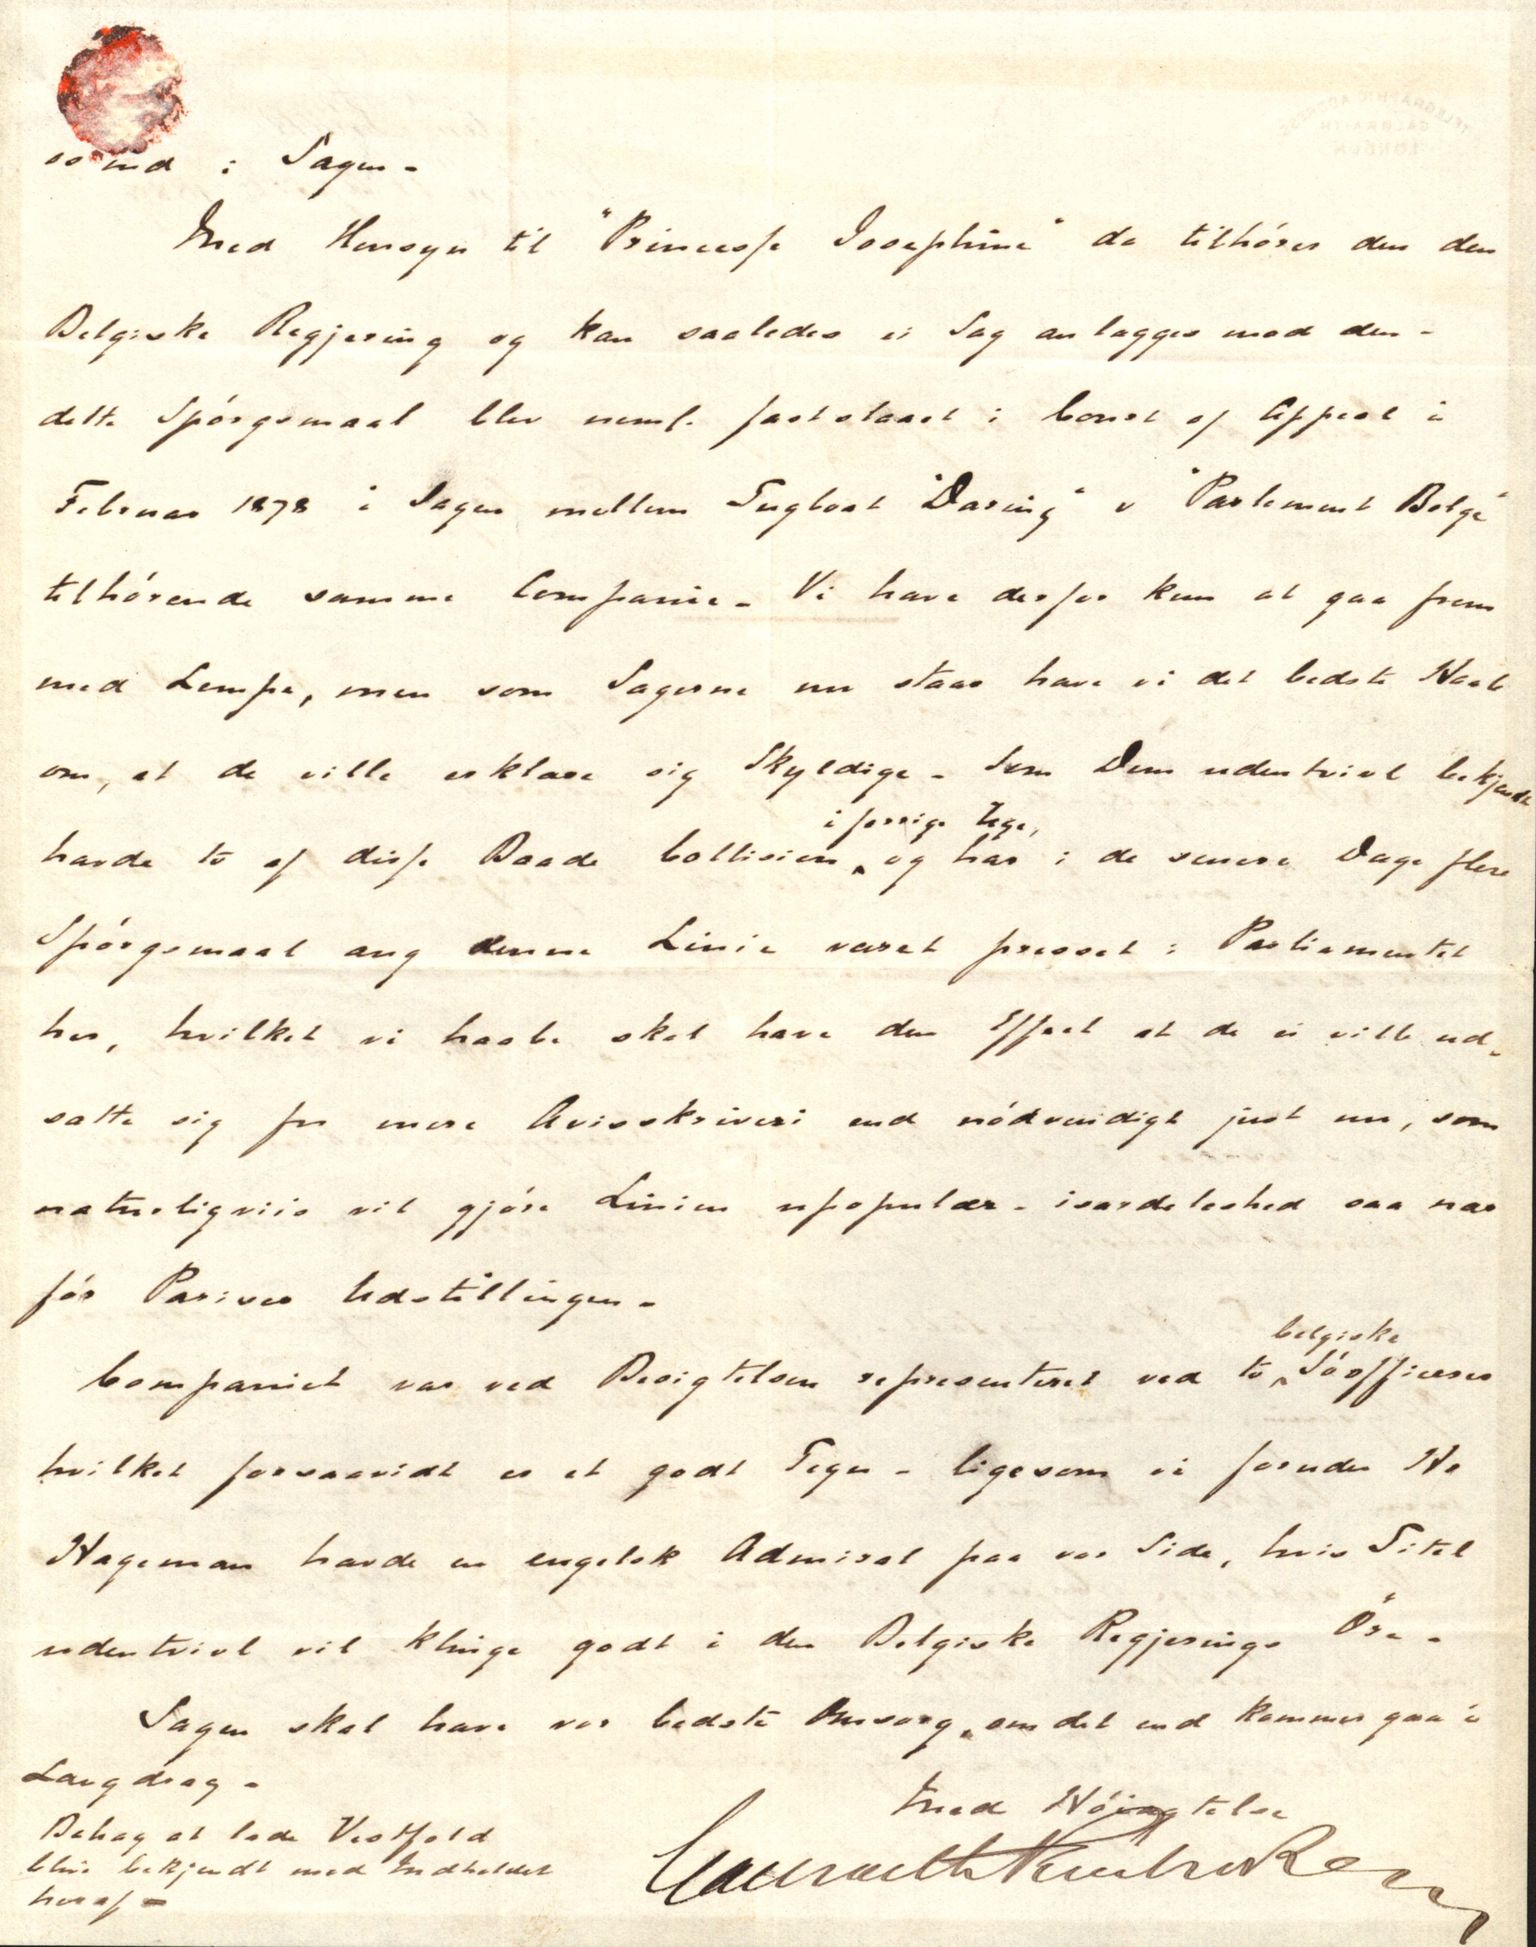 ind i Sagen -
Med Hensyn til "Princesse Josephine" da tilhører den den
Belgiske Regjering og kan saaledes ei Sag anlægges mod den -
dette Spørgsmaal blev neml. fastslaaet i Court of Appeal i
Februar 1878 i Sagen mellem Tugboat "Daring" v "Parlement Belge"
tilhørende samme Companie - Vi have derfor kun at gaa frem
med Lempe, men som Sagerne nu staar have vi det bedste Haab
om, at de ville erklære sig Skyldige - Som Dem udentvivl bekjendt
i forrige Uge,
havde to af disse Baade Collision og har i de senere Dage flere
Spørgsmaal ang denne Linie været presset i Parliamentet
her, hvilket vi haabe skal have den Effect at de ei ville ud-
sætte sig for mere Avisskriveri end nødvendigt just nu, som
naturligviis vil gjøre Linien upopulær - isærdeleshed saa nær
før Pariser Udstillingen -
belgiske
Companiet var ved Besigtelsen representeret ved to Søofficerer
hvilket forsaavidt er et godt Tegn - ligesom vi foruden Hr
Hageman havde en engelsk Admiral paa vor Side, hvis Titel
udentvivl vil klinge godt i den Belgiske Regjerings Øre -
Sagen skal have vor bedste Omsorg, om det end kommer gaa i
Langdrag -
Med Høiagtelse
Behag at lade Vestfold
blive bekjendt med Indholdet
heraf -